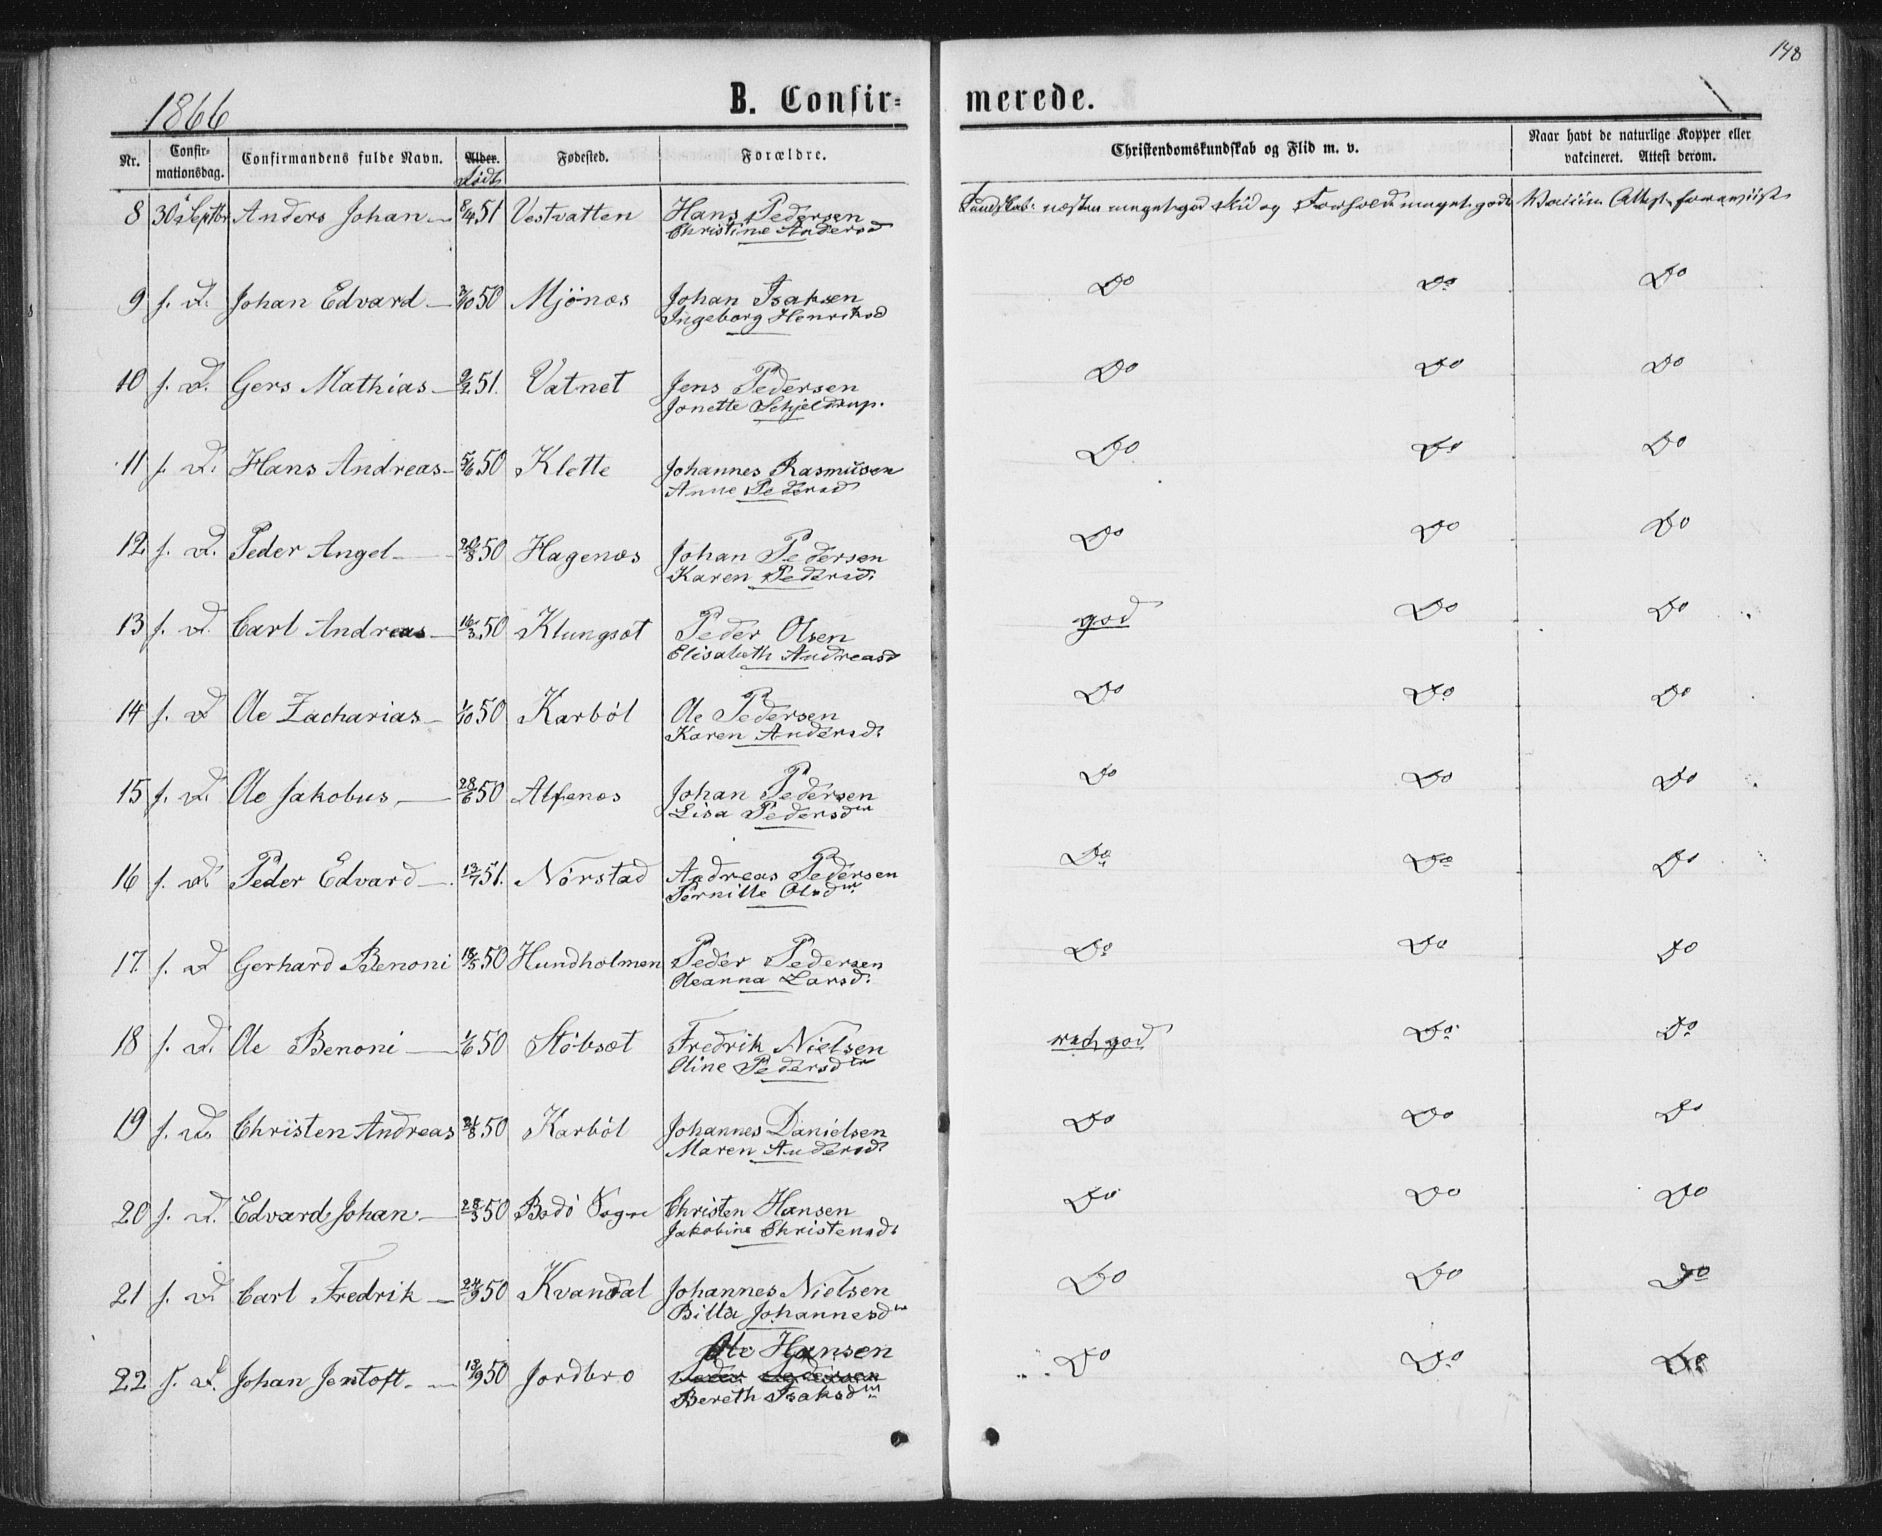 148
1866
B. Confir= merede.
Nr. Confir-mationsdag. Confirmandens fulde Navn. Alder. Født Fødested. Forældre. Christendomskundskab og Flid m. v. Naar havt de naturlige Kopper eller vakcineret. Attest derom.
8 30 Septbr Anders Johan — 8/4 51 Vestvatten Hans Pedersen Kundskab næsten meget god Flid og Forhold meget godt Vaccin. Attest foreviist
Christine Andersd
9 f. D. Johan Edvard — 50 Mjönæs Johan Isaksen Do Do Do
Ingeborg Henriksd
10 f. D. Gers Mathias — 9/2 51. Vatnet Jens Pedersen Do Do Do
Jonette Schjeldrup.
11 f. D. Hans Andreas — 50 Klette Johannes Rasmüsen Do Do Do
Anne Pedersd
12 f. D. Peder Angel — 50 Hagenæs Johan Pedersen Do Do Do
Karen Pedersd.
13 f. D. Carl Andreas — 16/3 50 Klungsæt Peder Olsen god Do Do
Elisabeth Andreasd
14 f. D Ole Zacharias — 1/10 50 Karböl Ole Pedersen Do Do Do
Karen Andersd.
15 f. D. Ole Jakobus, — 28/6 50 Alfenæs Johan Pedersen Do Do Do
Lisa Pedersdtr
16 f. D. Peder Edvard — 13/7 51. Nörstad Andreas Pedersen Do Do Do
Pernille Olsdtr
17. f. D Gerhard Benoni 18/5 50 Hundholmen Peder Pedersen Do Do Do
Oleanna Larsd.
18 f. D. Ole Benoni — 1/6 50 Störbsæt Fredrik Nielsen god Do Do
Oline Pedersdtr
19 f. D. Christen Andreas 50 Karböl Johannes Danielsen Do Do Do
Maren Andersd.
20 f. D. Edvard Johan — 28/3 50 Bodö Sogn Christen Hansen Do Do Do
Jakobine Christensd.
21 f. D. Carl Fredrik — 50 Kvandal Johannes Nielsen Do Do Do
Billa Johannesdtr
Ole Hansen
22 f. D. Johan Jentoft. — 50 Jordbro Peder Pedersen Do Do Do
Bereth Isaksdtr